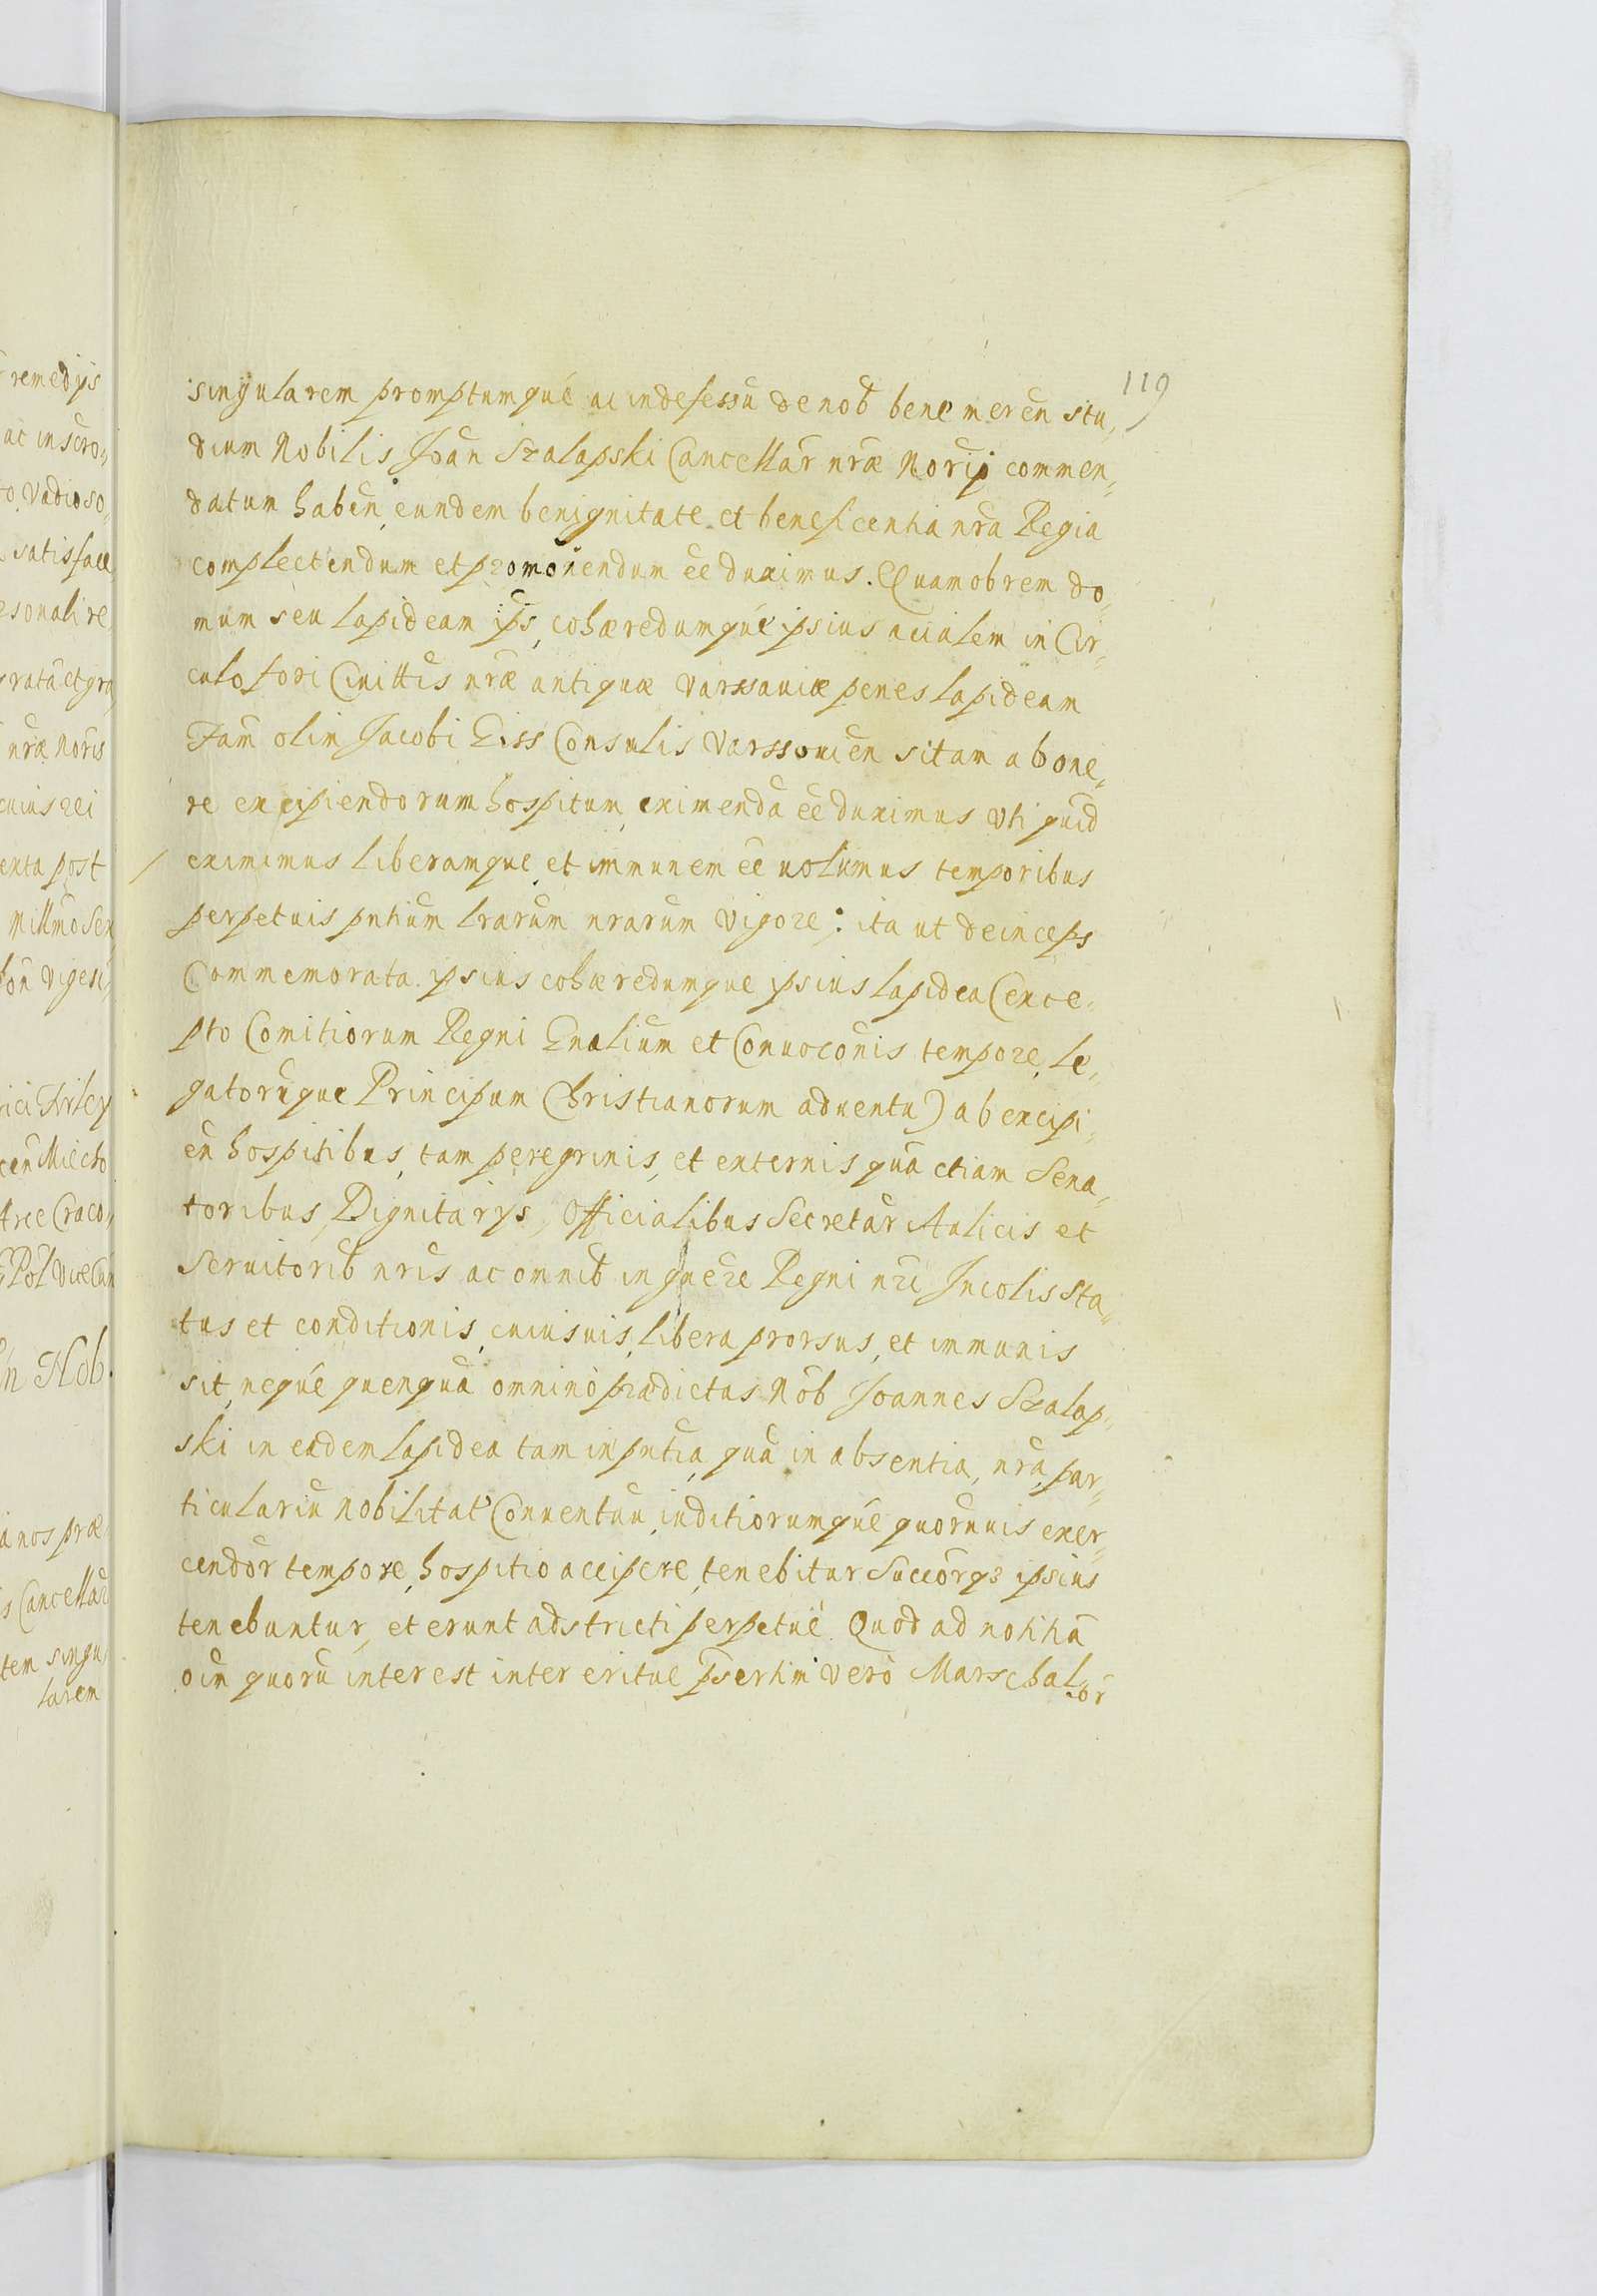 119
singularem promptumqué ac indefessũ de nob̃ bene merẽn stu„
dium Nobilis Joãn Szalapski Cancellar̃ nr̃æ Norij commen„
datum habẽn, eundem benignitate et beneficentia nr̃a Regia
complectendum et promouendum eẽ duximus. Quamobrem do„
mum seu lapideam ips̃, cohæredumqué ipsius acialem in Cir„
culo fori Ciuittis̃ nr̃æ antiquæ Varssauiæ penes lapideam
Fam̃ olim Jacobi Giss Consulis Varssouien̄ sitam ab one„
re excipiendorum hospitum, eximendã eẽ duximus Vti quid̃
eximimus liberamque et immunem eẽ uolumus temporibus
perpetuis pñtium lr̃arum nr̃arum Vigore; ita ut deinceps
Commemorata ipsius cohæredumque ipsius lapidea (exce„
pto Comitiorum Regni Gñalium et Conuocõnis tempore, le„
gatorũque Principum Christianorum aduentu) ab excipi„
eñ hospitibus, tam peregrinis, et externis quã etiam Sena„
toribus, Dignitarys, Officialibus Secretar̃ Aulicis et
Seruitorib̃ nr̃is ac omnib̃ in gñere Regni nr̃i Incolis Sta„
tus et conditionis, cuiusuis, libera prorsus, et immunis
sit, neqúe quenquã omninò prædictus Nob̃ Joannes Szalap„
ski in eadem lapidea tam in pñtia, quã in absentia, nr̃a, par„
ticulariũ Nobilitat̃ Conuentuũ, iuditiorumqúe quorũuis exer„
cendor̃ tempore, hospitio accipere, tenebitur Succõrqз ipsius
tenebuntur, et erunt adstricti perpetuè. Quod ad notitiã
oiũ quorũ interest inter eritue p̃sertim verò Marschal„
cor̃